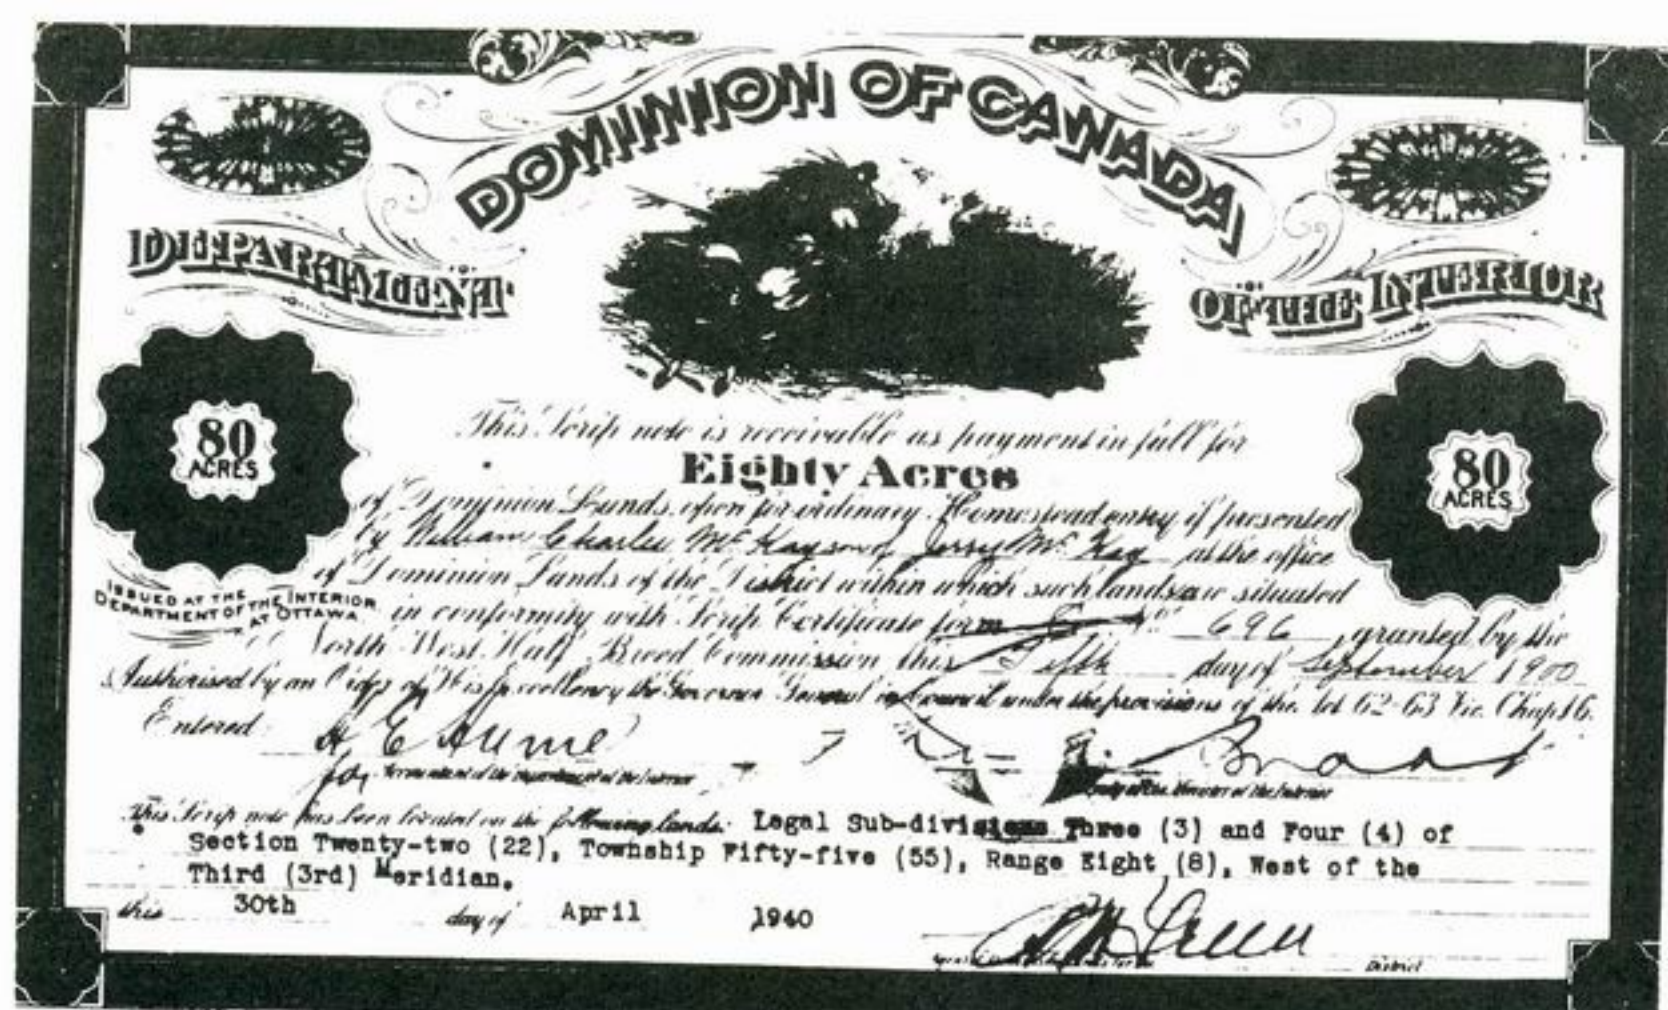 DOMINION OF CANADA
DEPARTMENT OF THE INTERIOR
80 ACRES
80 ACRES
This Scrip note is receivable as payment in full for
Eighty Acres
of Dominion Lands, open for ordinary Homestead entry if presented
by William Charles McKay son of Jerry McKay at the office
of Dominion Lands of the District within which such lands are situated
ISSUED AT THE
DEPARTMENT OF THE INTERIOR
AT OTTAWA
in conformity with Scrip Certificate form No. 696, granted by the
North West Half Breed Commission this Fifth day of September 1900
Authorised by an Order of His Excellency the Governor General in Council under the provisions of the Act 62-63 Vic. Chap 16.
Entered
for Accountant of the Department of the Interior
Deputy of the Minister of the Interior
This Scrip note has been located on the following lands: Legal Sub-divisions Three (3) and Four (4) of
Section Twenty-two (22), Township Fifty-five (55), Range Eight (8), West of the
Third (3rd) Meridian.
this 30th day of April 1940
District